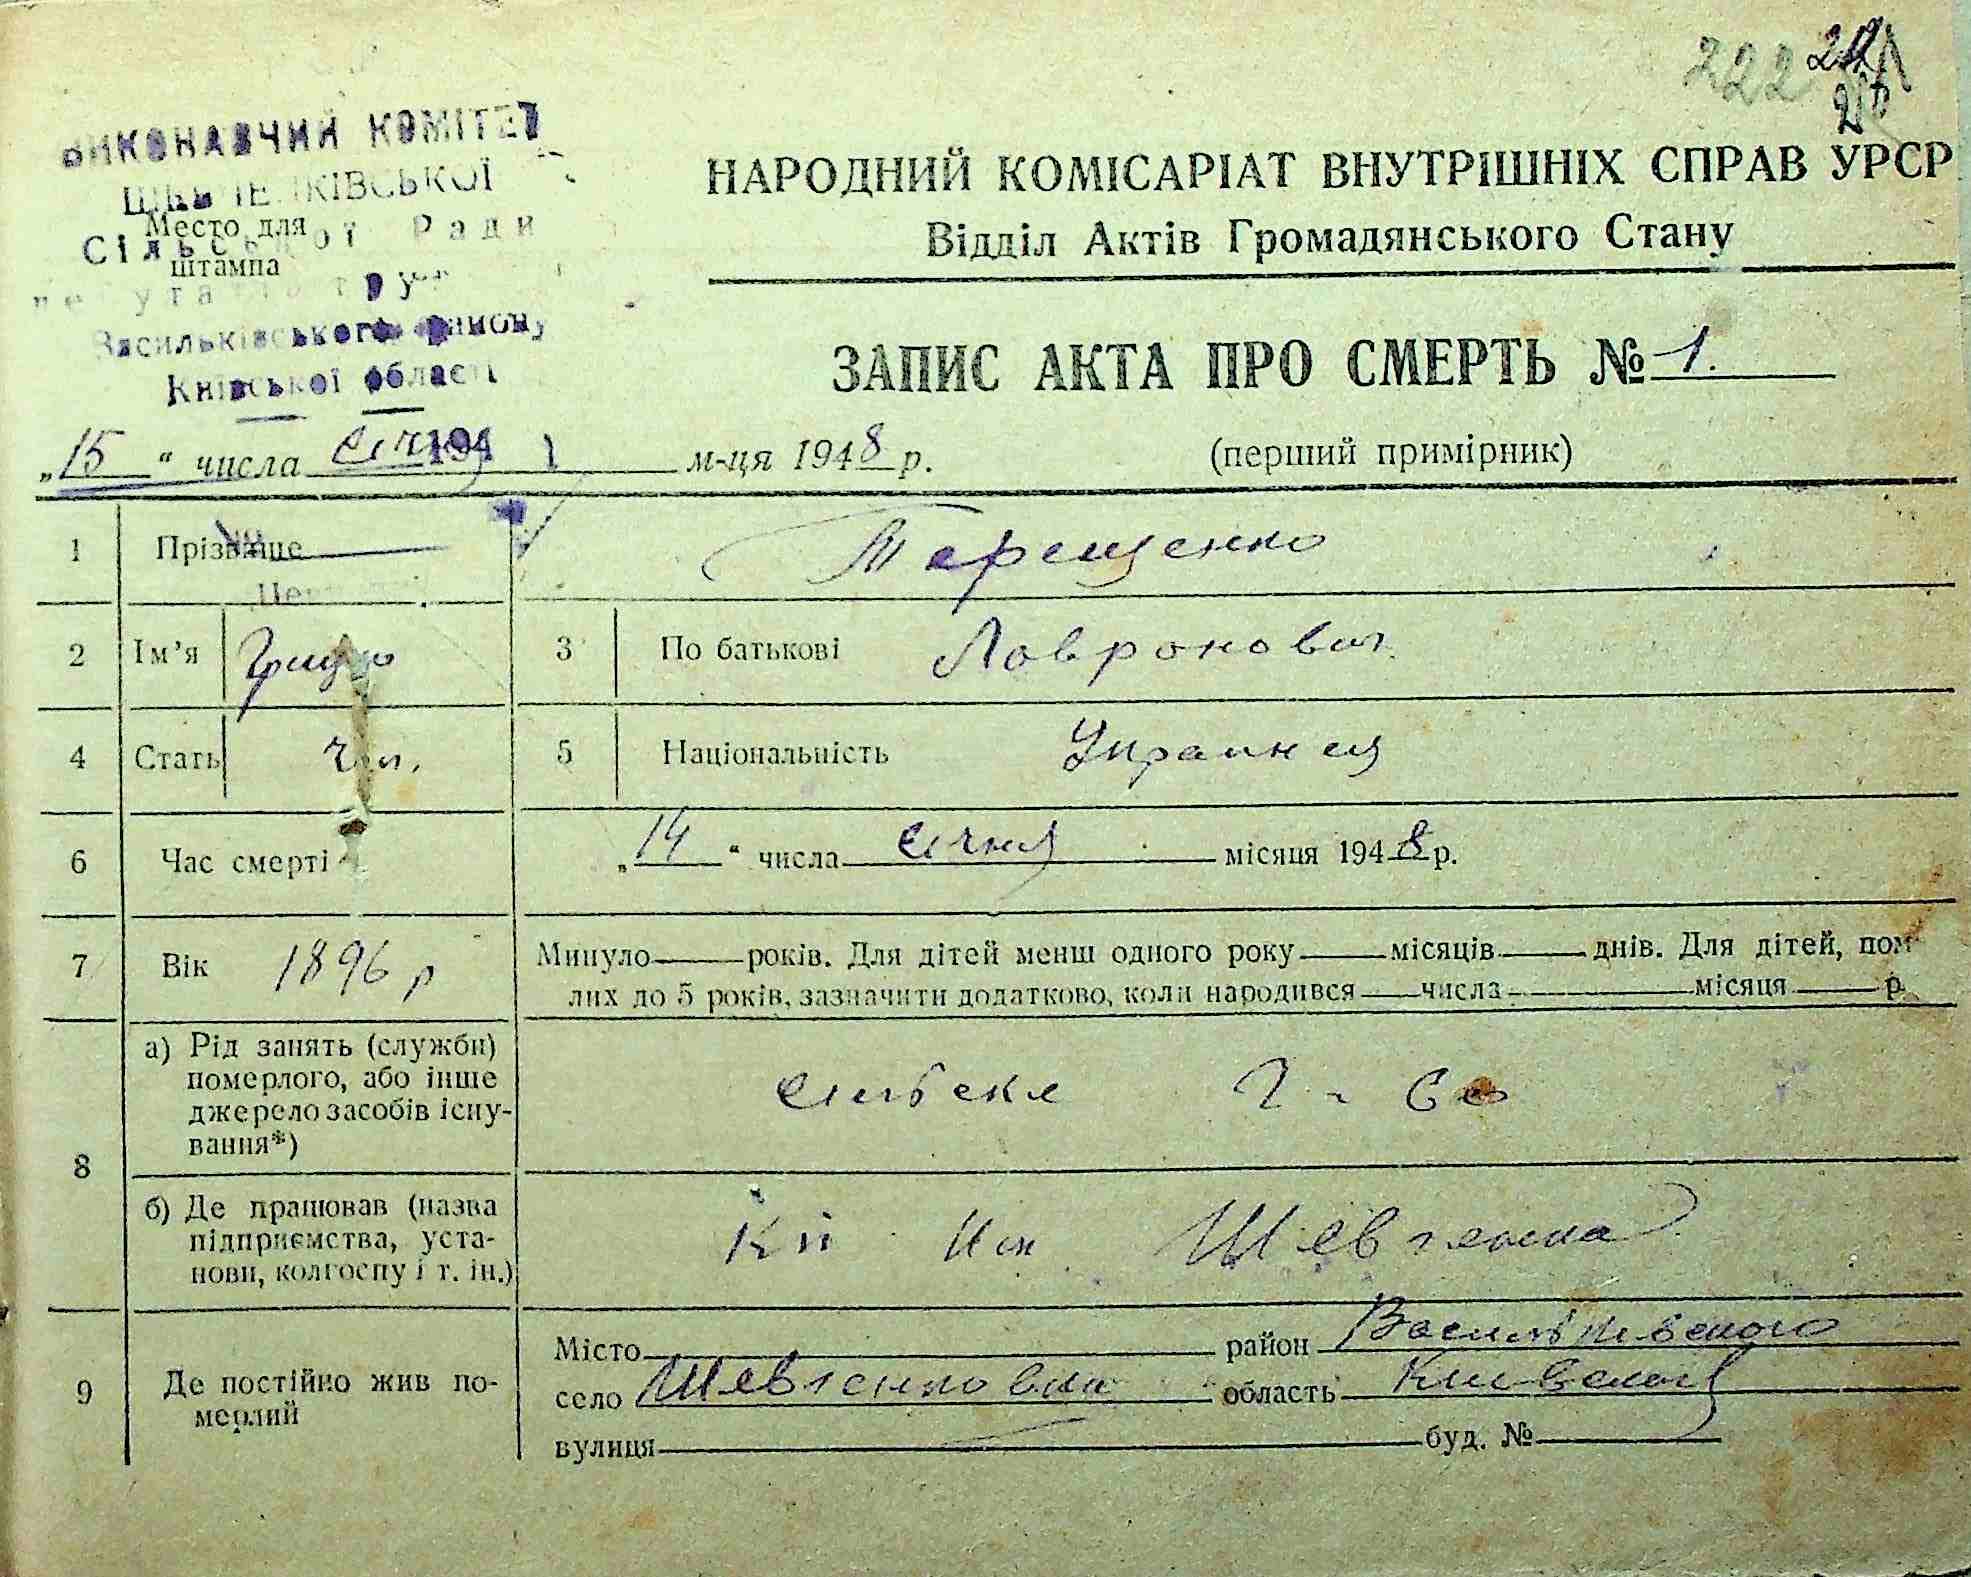 222 212
ВИКОНАВЧИЙ КОМІТЕТ
ШЕВЧЕНКІВСЬКОЇ
Место для
Сільської Ради
штампа
Васильківського району
Київської області
НАРОДНИЙ КОМІСАРІАТ ВНУТРІШНІХ СПРАВ УРСР
Відділ Актів Громадянського Стану
ЗАПИС АКТА ПРО СМЕРТЬ № 1.
„15“ числа січня 194 м-ця 1948 р. (перший примірник)
1 Прізвище Терещенко
2 Ім’я Грицко 3 По батькові Лавронович
4 Стать Чол. 5 Національність Украинец
6 Час смерті „14“ числа січня місяця 1948 р.
7 Вік 1896 р Минуло року. Для дітей менш одного року місяців днів. Для дітей, пом
лих до 5 років, зазначити додатково, коли народився числа місяця р
8 а) Рід занять (служби)
померлого, або інше
джерело засобів існу-
вання*)
сильске Г-Со
б) Де працював (назва
підприємства, уста-
нови, колгоспу і т. ін.)
Кп Им Шевченка
9 Де постійно жив по-
мерлий
Місто район Васильківского
село Шевченковка область Киевской
вулиця буд. №